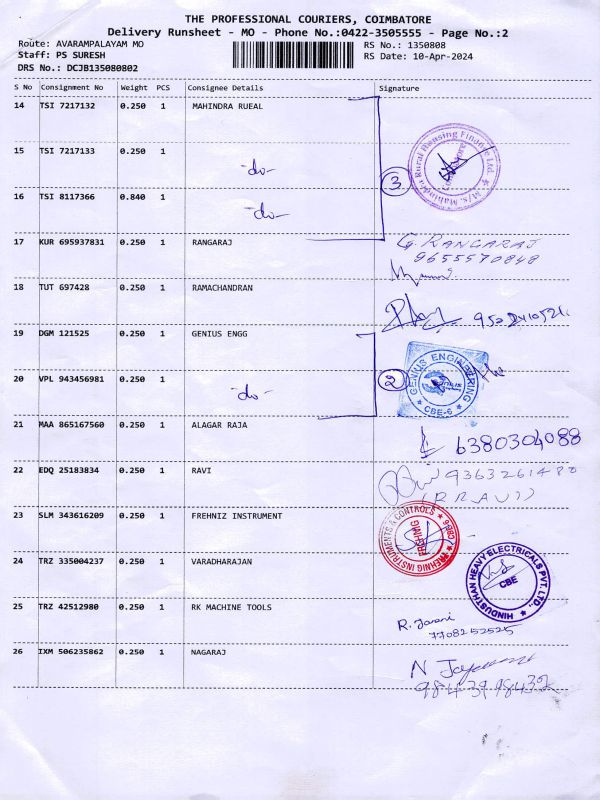 THE PROFESSIONAL COURIERS, COIMBATORE
Delivery Runsheet - MO - Phone No.:0422-3505555 - Page No.:2
Route: AVARAMPALAYAM MO
RS No.: 1350808
Staff: PS SURESH
RS Date: 10-Apr-2024
DRS No.: DCJB135080802
S No Consignment No Weight PCS Consignee Details Signature
14 TSI 7217132 0.250 1 MAHINDRA RUEAL
15 TSI 7217133 0.250 1
-do-
M/s. Mahindra Rural Housing Finance Ltd.
3
16 TSI 8117366 0.840 1
-do-
17 KUR 695937831 0.250 1 RANGARAJ
G. RANGARAJ
9655570848
18 TUT 697428 0.250 1 RAMACHANDRAN
19 DGM 121525 0.250 1 GENIUS ENGG
GENIUS ENGINEERING
CBE-6
2
20 VPL 943456981 0.250 1
-do-
21 MAA 865167560 0.250 1 ALAGAR RAJA
6380304088
22 EDQ 25183834 0.250 1 RAVI
9363261480
(R RAVI)
23 SLM 343616209 0.250 1 FREHNIZ INSTRUMENT
FREHNIG INSTRUMENTS & CONTROLS
FREHNIG
24 TRZ 335004237 0.250 1 VARADHARAJAN
HINDUSTHAN HEAVY ELECTRICALS PVT. LTD.,
CBE
25 TRZ 42512980 0.250 1 RK MACHINE TOOLS
R. Janani
7708252525
26 IXM 506235862 0.250 1 NAGARAJ
9843998432